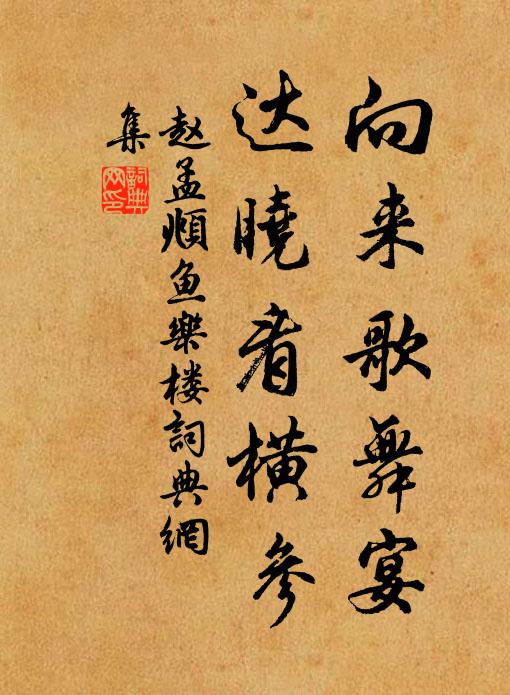 向来歌舞宴
达曉看橫參
赵孟頫鱼樂楼詞典網
集
詞典網印